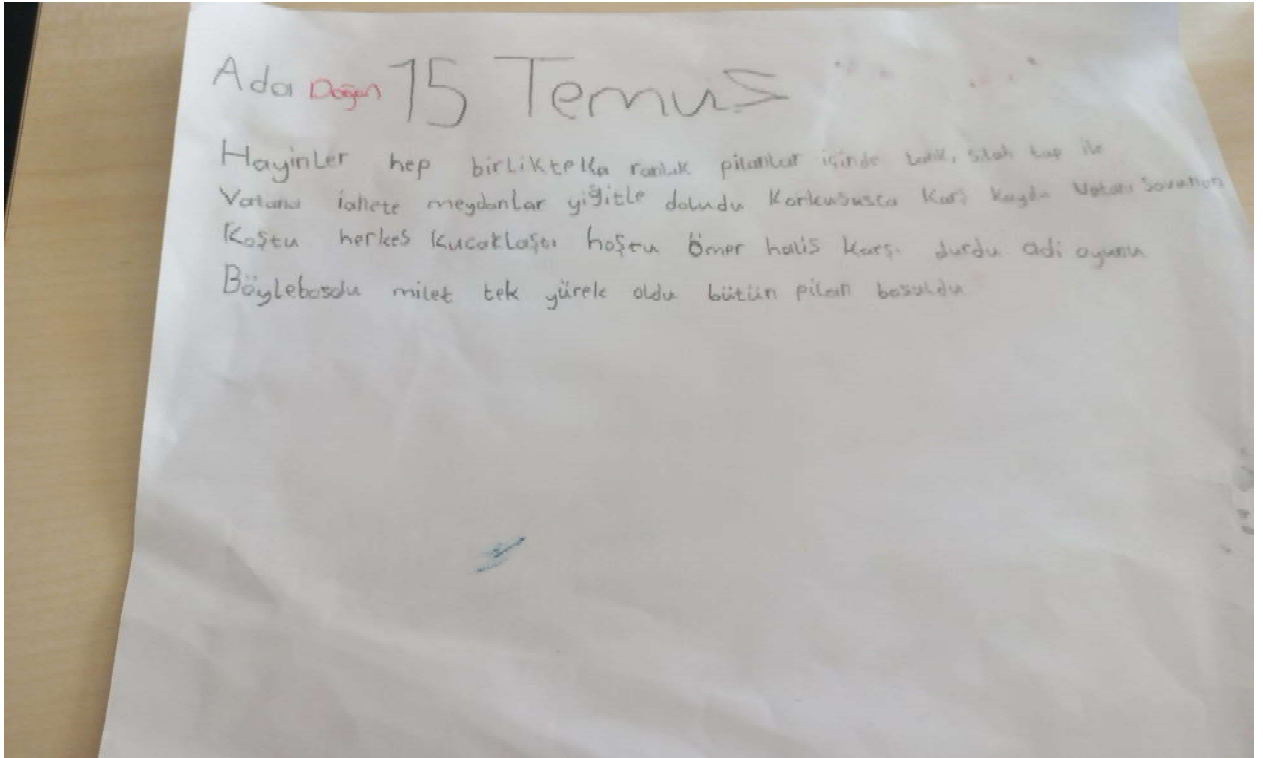 Ada Doğan 15 Temus
Hayinler hep birliktelka ranlık pilanlar içinde tank, silah top ile
Vatana iahete meydanlar yiğitle doludu Korkususca Karş koydu Vatanı Savunan
Koştu herkes kucaklaştı hoştu Ömer halis karşı durdu adi oyunu
Böylebosdu milet tek yürek oldu bütün pilan bosuldu